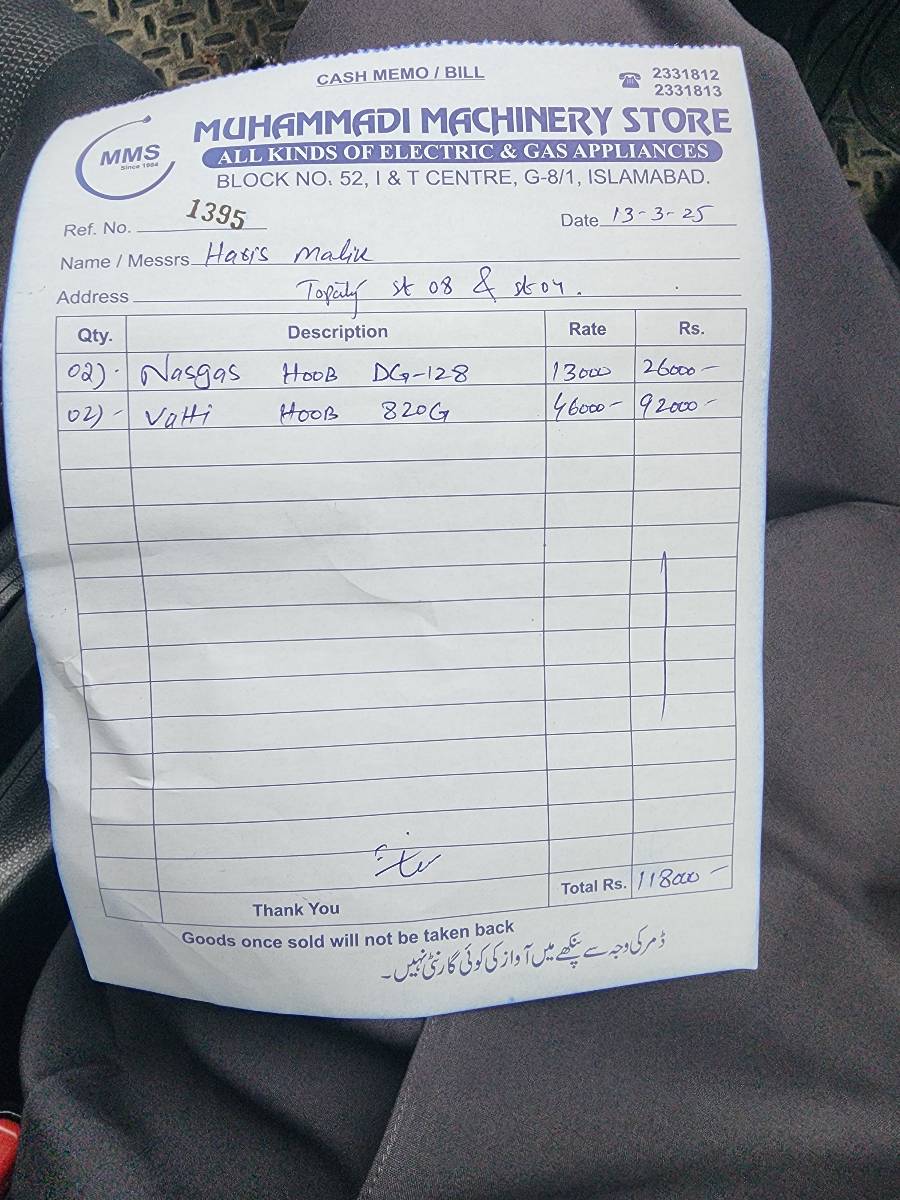 CASH MEMO / BILL
☎ 2331812
2331813
MMS
Since 1984
MUHAMMADI MACHINERY STORE
ALL KINDS OF ELECTRIC & GAS APPLIANCES
BLOCK NO. 52, I & T CENTRE, G-8/1, ISLAMABAD.
Ref. No. 1395
Date 13-3-25
Name / Messrs Haris Malik
Address st 08 & st 04.
Qty. Description Rate Rs.
02) - Nasgas HOOB DG-128 13000 26000 -
02) - Vatti HOOB 820G 46000 - 92000 -
Total Rs. 118000 -
Thank You
Goods once sold will not be taken back
ڈمر کی وجہ سے پنکھے میں آواز کی کوئی گارنٹی نہیں۔